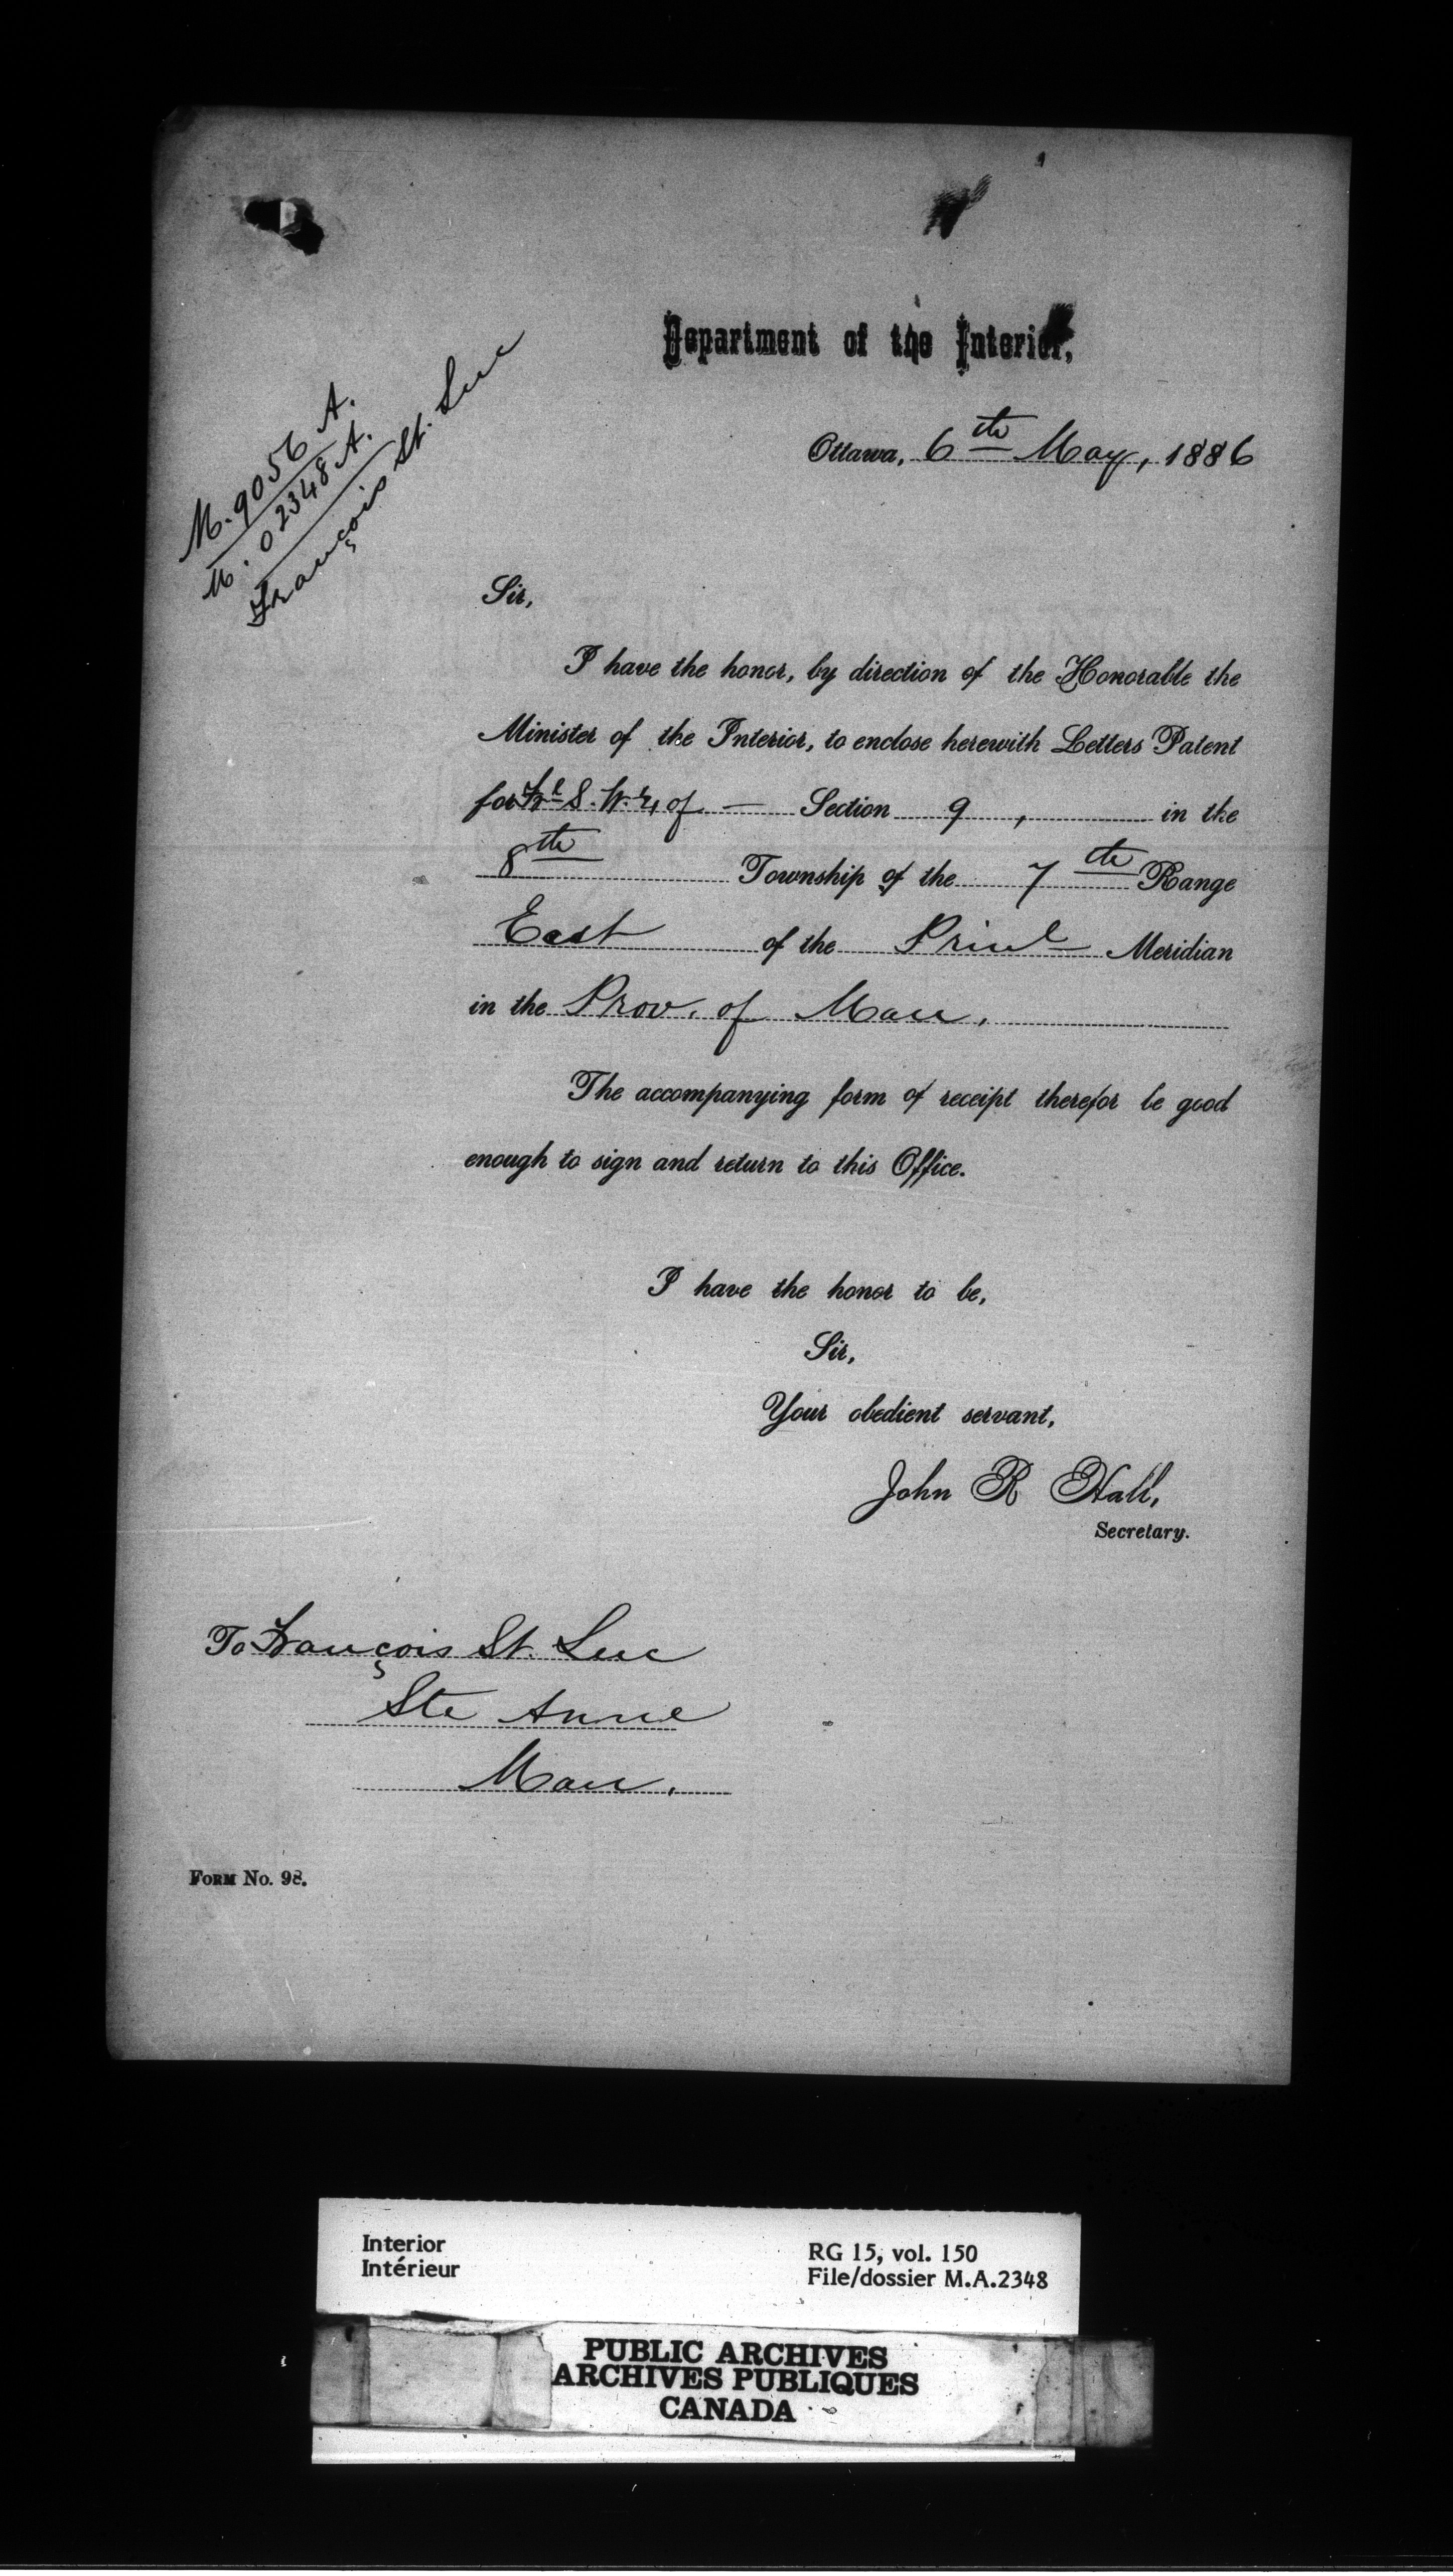 Department of the Interior,
Ottawa, 6th May, 1886
M. 9056 A.
M. 02348 A.
François St. Luc
Sir,
I have the honor, by direction of the Honorable the
Minister of the Interior, to enclose herewith Letters Patent
for Frl S. W. ¼ of — Section 9, in the
8th Township of the 7th Range
East of the Prinl Meridian
in the Prov. of Man.
The accompanying form of receipt therefor be good
enough to sign and return to this Office.
I have the honor to be,
Sir,
Your obedient servant,
John R Hall,
Secretary.
To François St. Luc
Ste Anne
Man.
FORM No. 98.
Interior
Intérieur
RG 15, vol. 150
File/dossier M.A.2348
PUBLIC ARCHIVES
ARCHIVES PUBLIQUES
CANADA